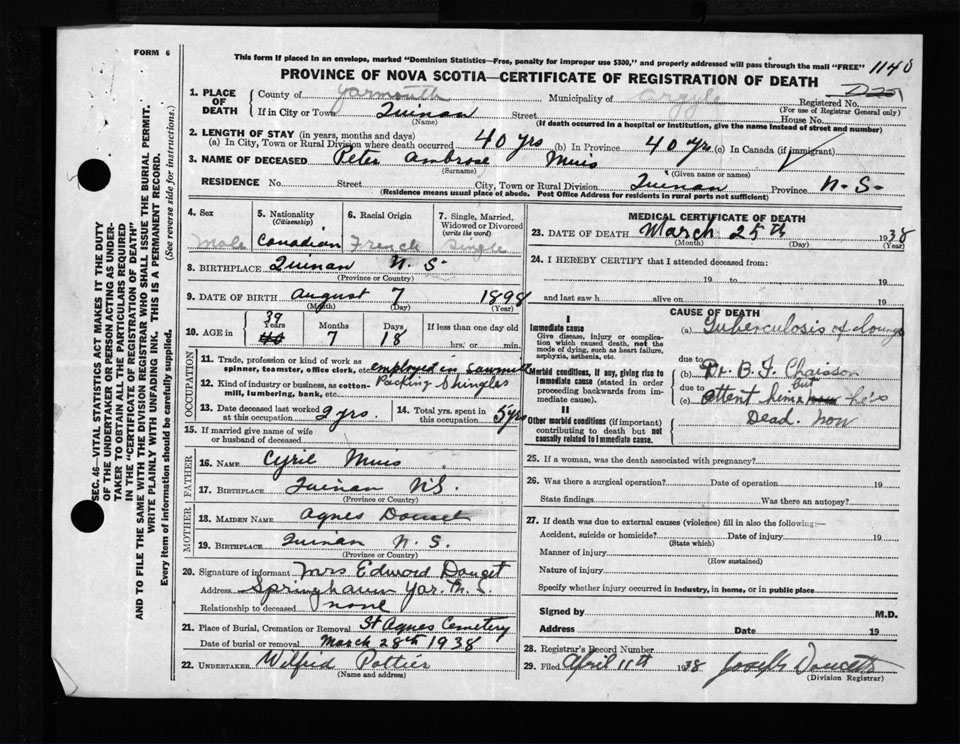 FORM 6
This form if placed in an envelope, marked "Dominion Statistics—Free, penalty for improper use $300," and properly addressed will pass through the mail "FREE" 1140
PROVINCE OF NOVA SCOTIA—CERTIFICATE OF REGISTRATION OF DEATH
1. PLACE OF DEATH County of Yarmouth Municipality of Argyle Registered No.
(For use of Registrar General only)
If in City or Town Quinan Street House No.
(Name) (If death occurred in a hospital or institution, give the name instead of street and number)
2. LENGTH OF STAY (in years, months and days)
(a) In City, Town or Rural Division where death occurred 40 yrs (b) In Province 40 yrs (c) In Canada (if immigrant)
3. NAME OF DECEASED Peter Ambrose Muis
(Surname) (Given name or names)
RESIDENCE No. Street City, Town or Rural Division Quinan Province N.S.
(Residence means usual place of abode. Post Office Address for residents in rural parts not sufficient)
4. Sex Male
5. Nationality (Citizenship) Canadian
6. Racial Origin French
7. Single, Married, Widowed or Divorced (write the word) Single
8. BIRTHPLACE Quinan N.S.
(Province or Country)
9. DATE OF BIRTH August 7 1898
(Month) (Day) (Year)
10. AGE in 39 Years 7 Months 18 Days If less than one day old
hrs. or min.
OCCUPATION
11. Trade, profession or kind of work as spinner, teamster, office clerk, etc. employed in sawmill
12. Kind of industry or business, as cotton-mill, lumbering, bank, etc. Packing Shingles
13. Date deceased last worked at this occupation 2 yrs. 14. Total yrs. spent in this occupation 5 yrs
15. If married give name of wife or husband of deceased
FATHER
16. NAME Cyril Muis
17. BIRTHPLACE Quinan N.S.
(Province or Country)
MOTHER
18. MAIDEN NAME Agnes Doucet
19. BIRTHPLACE Quinan N.S.
(Province or Country)
20. Signature of informant Mrs Edward Doucet
Address Springhaven Yar. N.S.
Relationship to deceased none
21. Place of Burial, Cremation or Removal St Agnes Cemetery
Date of burial or removal March 28th 1938
22. UNDERTAKER Wilfrid Pottier
(Name and address)
MEDICAL CERTIFICATE OF DEATH
23. DATE OF DEATH March 25th 1938
(Month) (Day) (Year)
24. I HEREBY CERTIFY that I attended deceased from:
19 to 19
and last saw h alive on 19
CAUSE OF DEATH
I
Immediate cause
Give disease, injury or complication which caused death, not the mode of dying, such as heart failure, asphyxia, asthenia, etc.
(a) Tuberculosis of Lungs
due to
Morbid conditions, if any, giving rise to immediate cause (stated in order proceeding backwards from immediate cause).
(b) Dr. B. F. Chaisson
due to
(c) attent him but he's
Dead. now
II
Other morbid conditions (if important) contributing to death but not causally related to immediate cause.
25. If a woman, was the death associated with pregnancy?
26. Was there a surgical operation? Date of operation 19
State findings Was there an autopsy?
27. If death was due to external causes (violence) fill in also the following:—
Accident, suicide or homicide? Date of injury 19
(State which)
Manner of injury
(How sustained)
Nature of injury
Specify whether injury occurred in industry, in home, or in public place
Signed by M.D.
Address Date 19
28. Registrar's Record Number
29. Filed April 11th 1938 Joseph Doucette
(Division Registrar)
SEC. 46—VITAL STATISTICS ACT MAKES IT THE DUTY
OF THE UNDERTAKER OR PERSON ACTING AS UNDER-
TAKER TO OBTAIN ALL THE PARTICULARS REQUIRED
IN THE "CERTIFICATE OF REGISTRATION OF DEATH"
AND TO FILE THE SAME WITH THE DIVISION REGISTRAR WHO SHALL ISSUE THE BURIAL PERMIT.
WRITE PLAINLY WITH UNFADING INK. THIS IS A PERMANENT RECORD.
Every item of information should be carefully supplied. (See reverse side for instructions.)